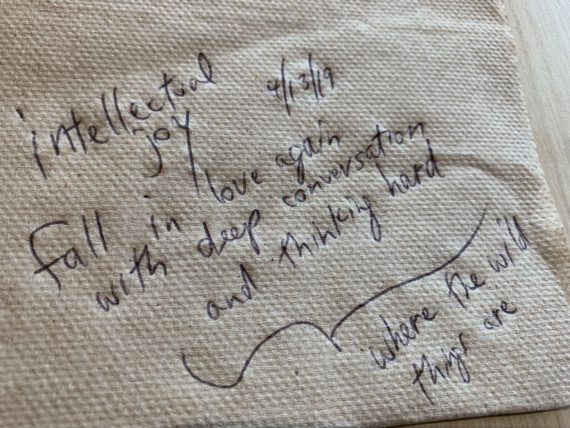 intellectual
joy
4/13/19
fall in love again
with deep conversation
and thinking hard
where the wild
things are